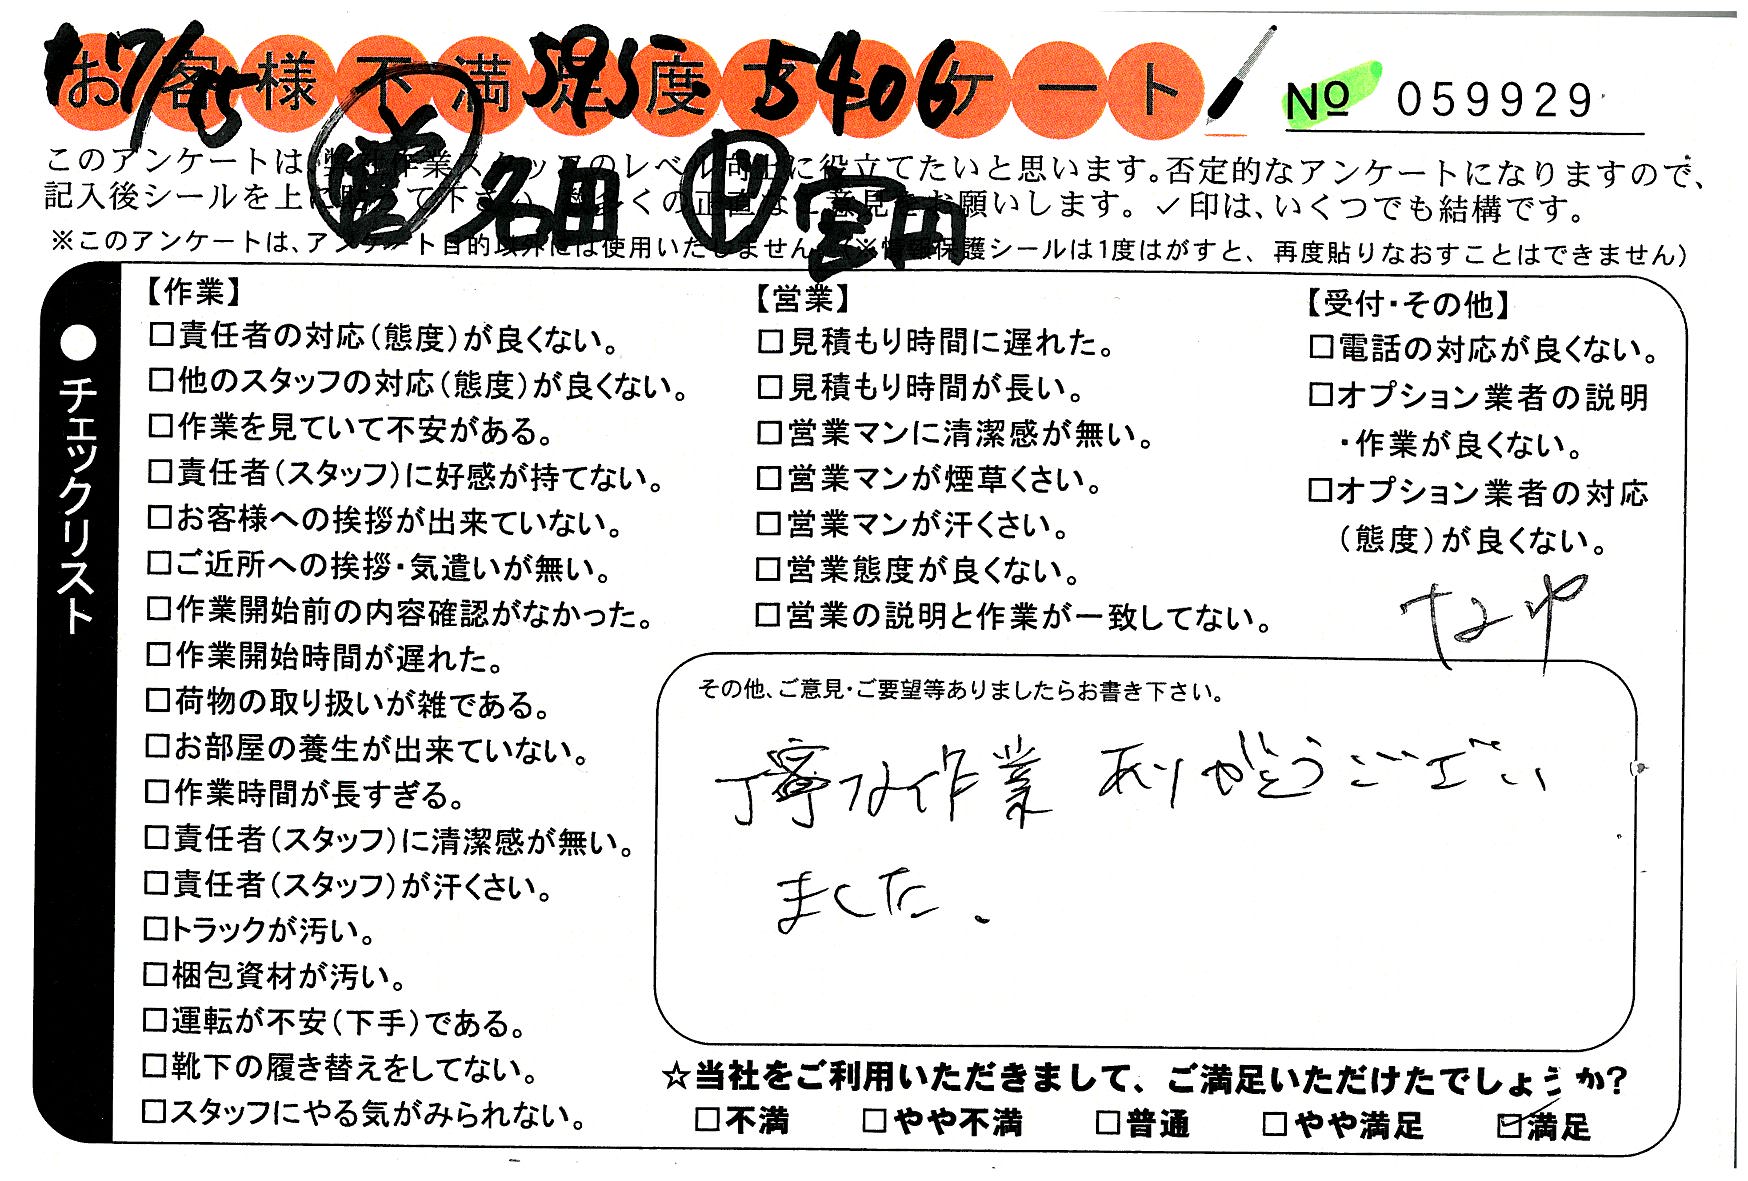 お客様不満足度アンケート
7/15 595-5406
№ 059929
このアンケートは、弊社作業スタッフのレベル向上に役立てたいと思います。否定的なアンケートになりますので、
記入後シールを上に貼って下さい。数多くの正直な、意見をお願いします。✓印は、いくつでも結構です。
営 名田 宮田
※このアンケートは、アンケート目的以外には使用いたしません。(※情報保護シールは1度はがすと、再度貼りなおすことはできません)
●チェックリスト
【作業】
□責任者の対応(態度)が良くない。
□他のスタッフの対応(態度)が良くない。
□作業を見ていて不安がある。
□責任者(スタッフ)に好感が持てない。
□お客様への挨拶が出来ていない。
□ご近所への挨拶・気遣いが無い。
□作業開始前の内容確認がなかった。
□作業開始時間が遅れた。
□荷物の取り扱いが雑である。
□お部屋の養生が出来ていない。
□作業時間が長すぎる。
□責任者(スタッフ)に清潔感が無い。
□責任者(スタッフ)が汗くさい。
□トラックが汚い。
□梱包資材が汚い。
□運転が不安(下手)である。
□靴下の履き替えをしてない。
□スタッフにやる気がみられない。
【営業】
□見積もり時間に遅れた。
□見積もり時間が長い。
□営業マンに清潔感が無い。
□営業マンが煙草くさい。
□営業マンが汗くさい。
□営業態度が良くない。
□営業の説明と作業が一致してない。
【受付・その他】
□電話の対応が良くない。
□オプション業者の説明
・作業が良くない。
□オプション業者の対応
(態度)が良くない。
その他、ご意見・ご要望等ありましたらお書き下さい。
丁寧な作業 ありがとうござい
ました.
☆当社をご利用いただきまして、ご満足いただけたでしょうか?
□不満 □やや不満 □普通 □やや満足 ☑満足